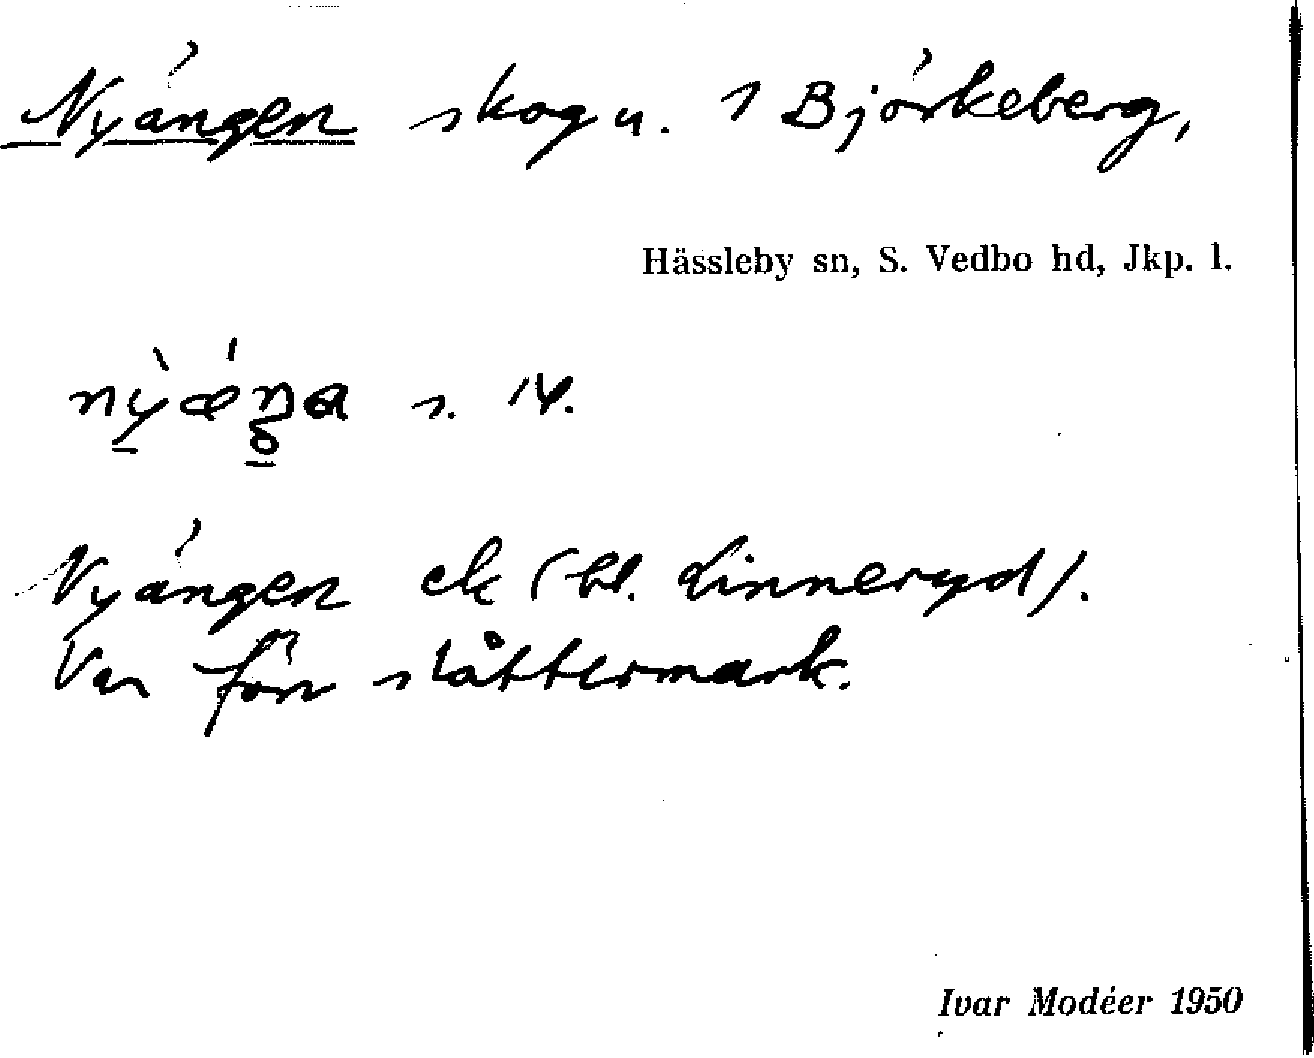 Nyängen skog u. s Björkeberg,
Hässleby sn, S. Vedbo hd, Jkp. l.
s. 14.
Nyängen ek (bl. Linneryd).
Var förr slåttermark.
Ivar Modéer 1950